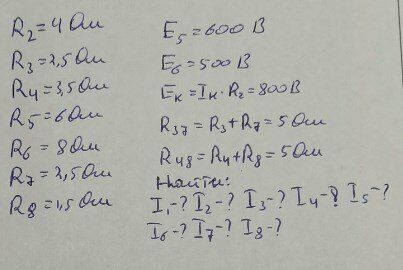 R₂=4 Ом
R₃=2,5 Ом
R₄=3,5 Ом
R₅=6 Ом
R₆=8 Ом
R₇=2,5 Ом
R₈=1,5 Ом
E₅=600 В
E₆=500 В
Eₖ=Iₖ·R₂=800В
R₃₇=R₃+R₇=5 Ом
R₄₈=R₄+R₈=5 Ом
Найти:
I₁-? I₂-? I₃-? I₄-? I₅-?
I₆-? I₇-? I₈-?